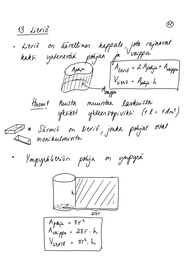 13 Lieriö
• Lieriö on äärellinen kappale, jota rajaavat
kaksi yhtenevää pohjaa ja vaippa
A lieriö = 2 A pohja + A vaippa
V lieriö = A pohja · h
Huom! Muista muuntaa laskuista
yksiköt yhteensopiviksi (1 l = 1 dm³)
* Särmiö on lieriö, jonka pohjat ovat
monikulmioita
• Ympyrälieriön pohja on ympyrä
h
2πr
A pohja = πr²
A vaippa = 2πr · h
V lieriö = πr² · h